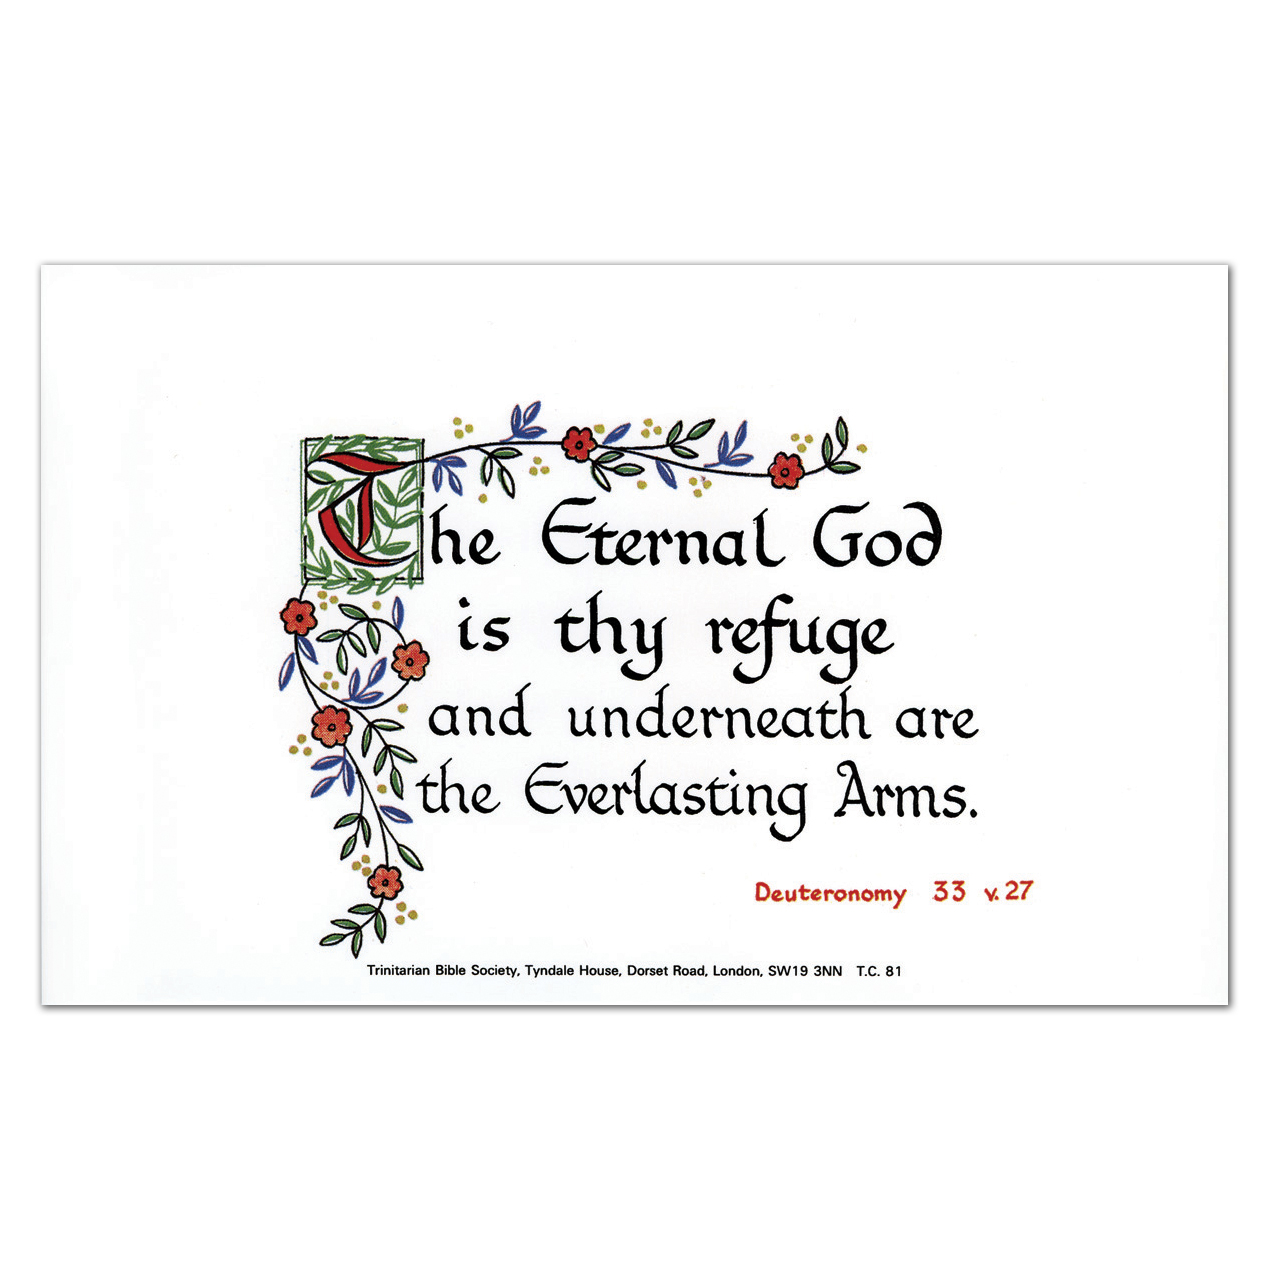 The Eternal God
is thy refuge
and underneath are
the Everlasting Arms.
Deuteronomy 33 v. 27
Trinitarian Bible Society, Tyndale House, Dorset Road, London, SW19 3NN T.C. 81